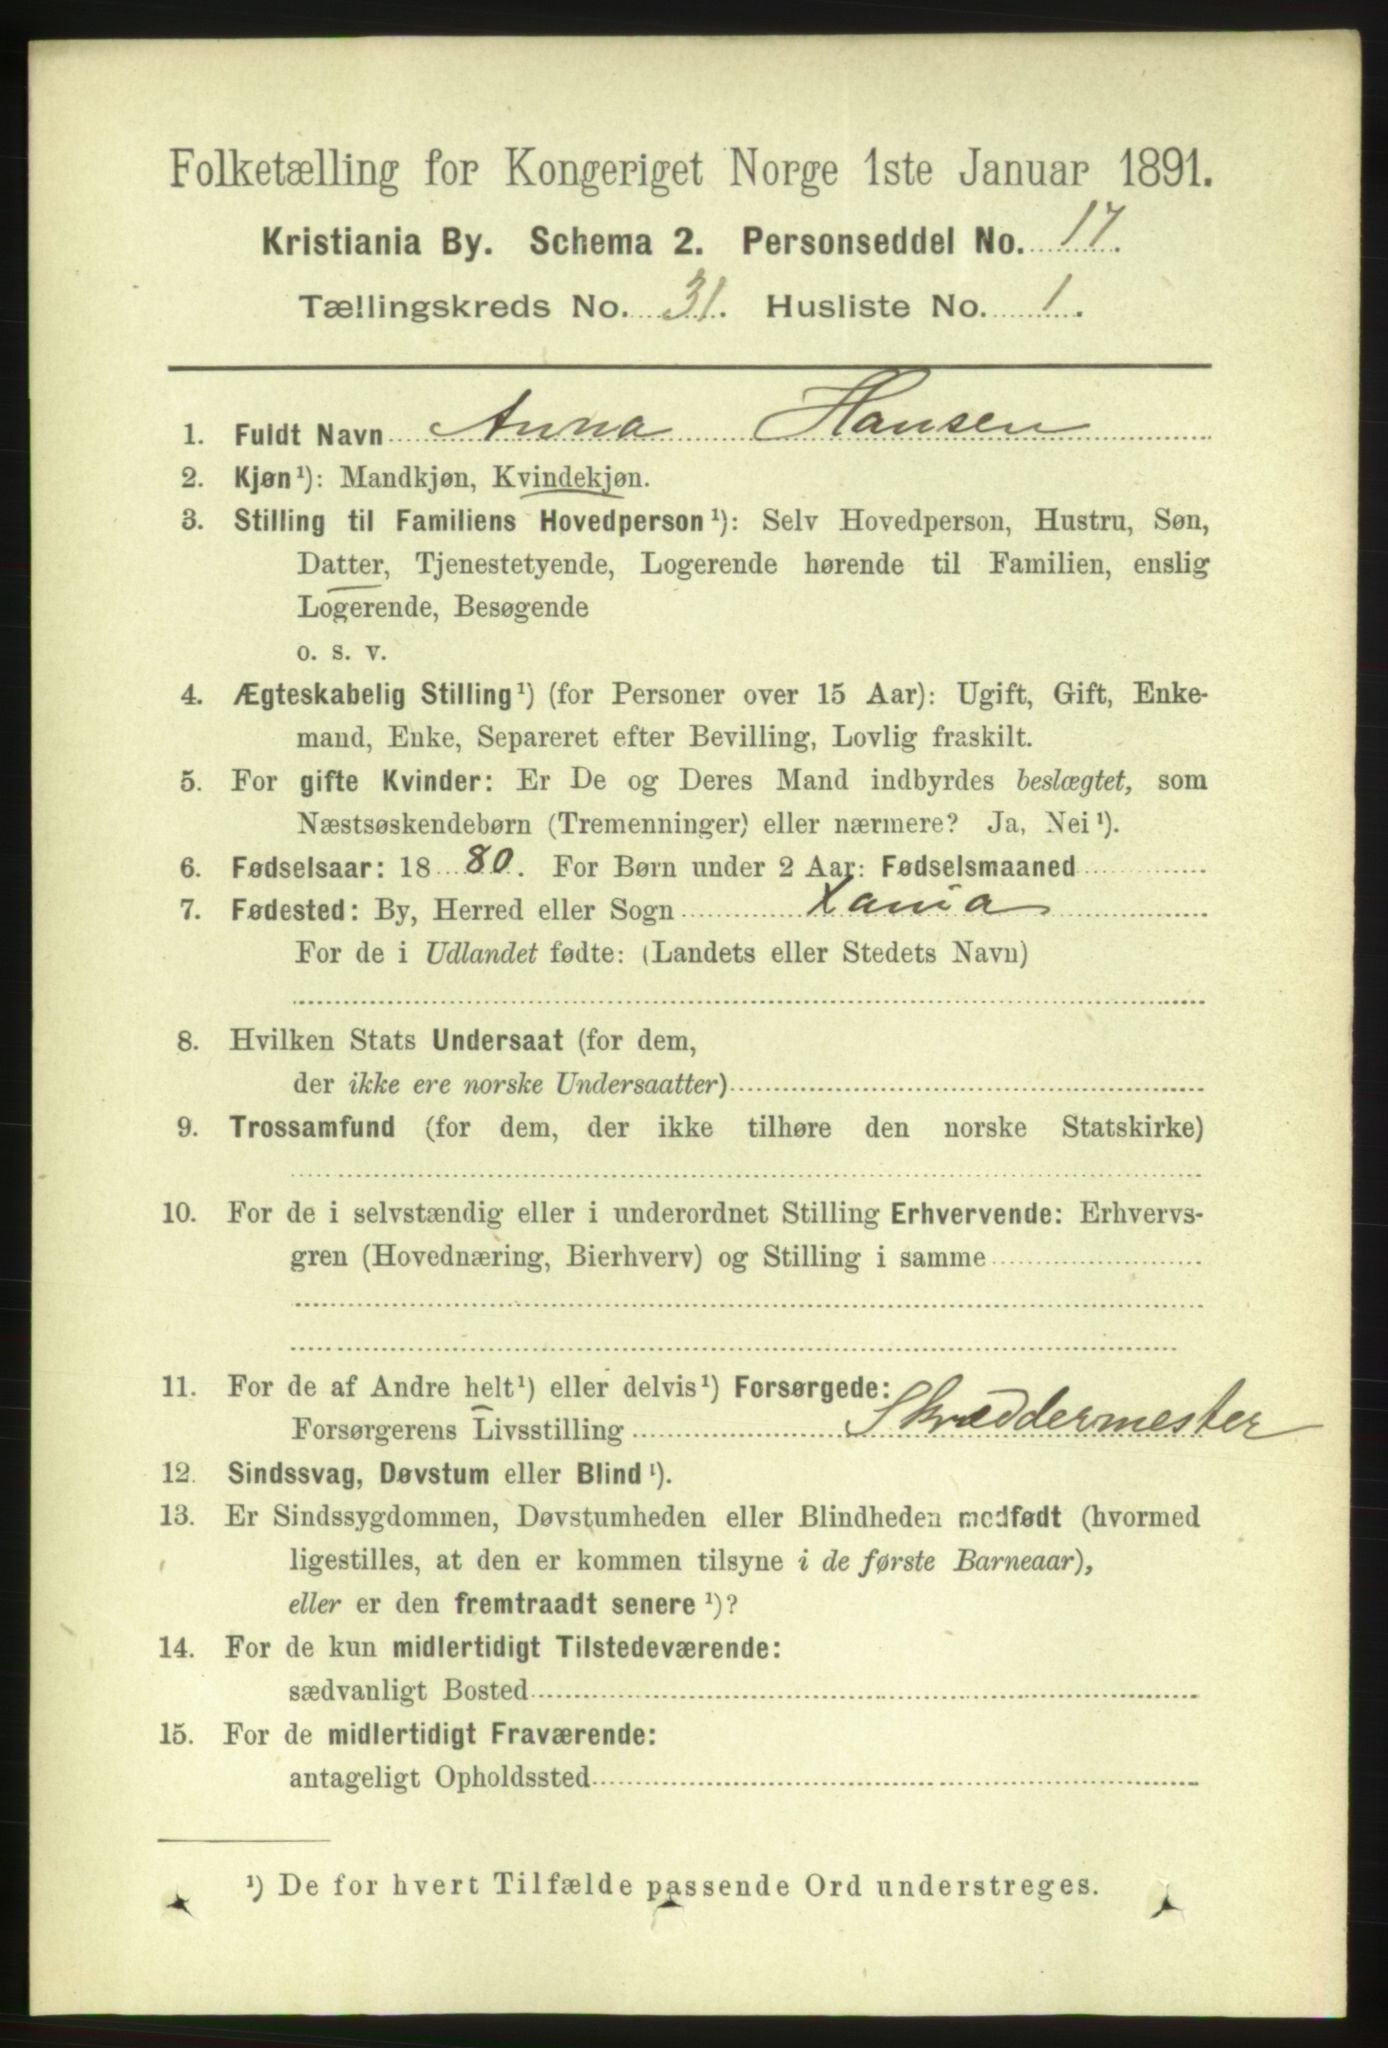 Folketælling for Kongeriget Norge 1ste Januar 1891.
Kristiania By. Schema 2. Personseddel No. 17.
Tællingskreds No. 31. Husliste No. 1.
1. Fuldt Navn Anna Hansen
2. Kjøn¹): Mandkjøn, Kvindekjøn.
3. Stilling til Familiens Hovedperson¹): Selv Hovedperson, Hustru, Søn,
Datter, Tjenestetyende, Logerende hørende til Familien, enslig
Logerende, Besøgende
o. s. v.
4. Ægteskabelig Stilling¹) (for Personer over 15 Aar): Ugift, Gift, Enke-
mand, Enke, Separeret efter Bevilling, Lovlig fraskilt.
5. For gifte Kvinder: Er De og Deres Mand indbyrdes beslægtet, som
Næstsøskendebørn (Tremenninger) eller nærmere? Ja, Nei¹).
6. Fødselsaar: 1880. For Børn under 2 Aar: Fødselsmaaned
7. Fødested: By, Herred eller Sogn Xania
For de i Udlandet fødte: (Landets eller Stedets Navn)
8. Hvilken Stats Undersaat (for dem,
der ikke ere norske Undersaatter)
9. Trossamfund (for dem, der ikke tilhøre den norske Statskirke)
10. For de i selvstændig eller i underordnet Stilling Erhvervende: Erhvervs-
gren (Hovednæring, Bierhverv) og Stilling i samme
11. For de af Andre helt¹) eller delvis¹) Forsørgede:
Forsørgerens Livsstilling Skræddermester
12. Sindssvag, Døvstum eller Blind¹).
13. Er Sindssygdommen, Døvstumheden eller Blindheden medfødt (hvormed
ligestilles, at den er kommen tilsyne i de første Barneaar),
eller er den fremtraadt senere¹)?
14. For de kun midlertidigt Tilstedeværende:
sædvanligt Bosted
15. For de midlertidigt Fraværende:
antageligt Opholdssted
¹) De for hvert Tilfælde passende Ord understreges.